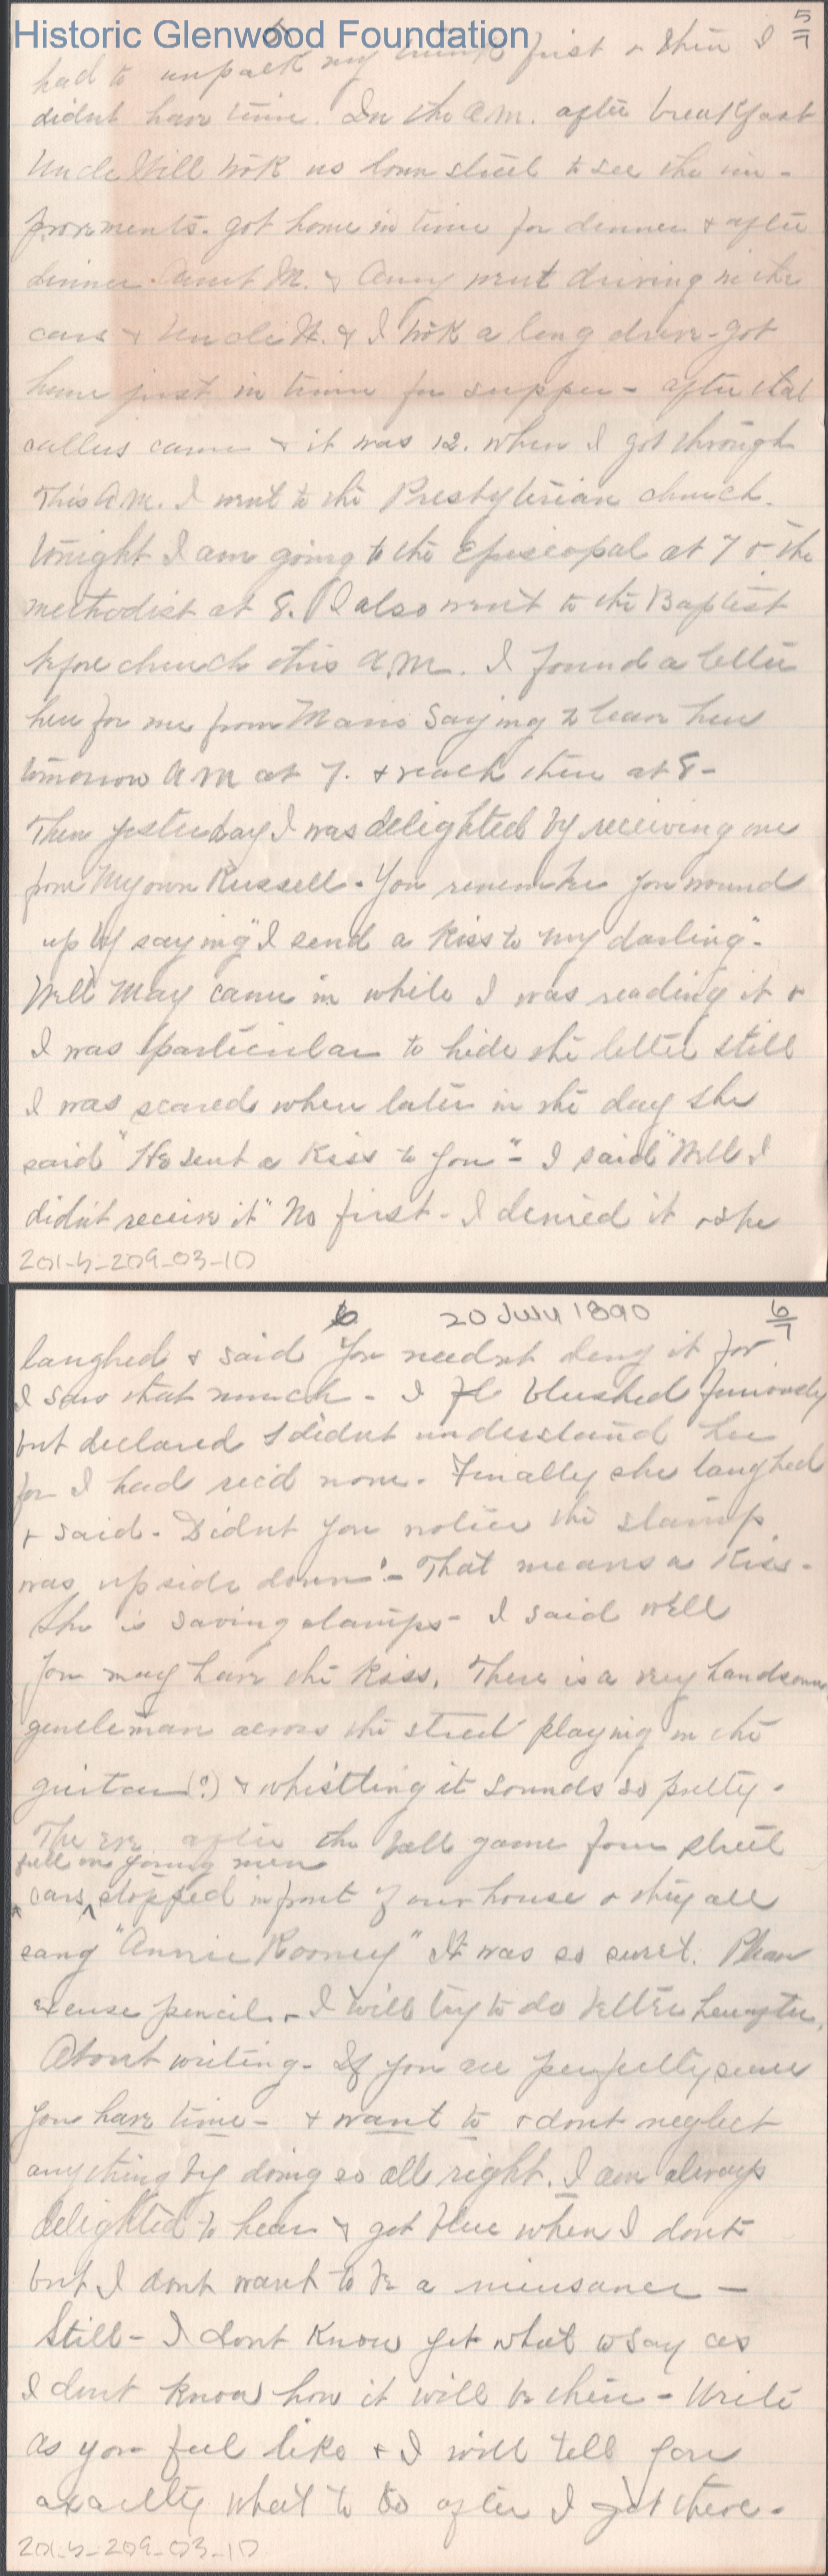 Historic Glenwood Foundation
5
5/7
had to unpack my trunk first & then I
didnt have time. In the A.M. after breakfast
Uncle Will took us down street to see the im-
provements. got home in time for dinner & after
dinner Aunt M. & Amy went driving in the
cars & Uncle W. & I took a long drive - got
home just in time for supper - after that
callers came & it was 12. when I got through
This A.M. I went to the Presbyterian church.
tonight I am going to the Episcopal at 7 & the
methodist at 8. I also went to the Baptist
before church this A.M. I found a letter
here for me from Mavis saying to leave here
tomorrow AM at 7. & reach there at 8 -
Then yesterday I was delighted by receiving one
from My own Russell - You remember you wound
up by saying "I send a kiss to my darling" -
Well May came in while I was reading it &
I was particular to hide the letter still
I was scared when later in the day she
said "He sent a kiss to you" - I said "Well I
didn't receive it" No first - I denied it & she
201-5-209-03-10
6
20 July 1890
6/7
laughed & said You needn't deny it for
I saw that much - I blushed furiously
but declared I didnt understand her
for I had rec'd none. Finally she laughed
& said - Didnt you notice the stamp
was upside down! - That means a Kiss -
She is saving stamps - I said well
you may have the kiss. There is a very handsome
gentleman across the street playing on the
guitar (?) & whistling it sounds so pretty -
The eve after the ball game four street
full on young men
cars ^ stopped in front of our house & they all
sang "Annie Rooney" It was so sweet. Please
excuse pencil - I will try to do better hereafter.
About writing - If you are perfectly sure
you have time - & want to & dont neglect
anything by doing so all right. I am always
delighted to hear & get blue when I dont
but I dont want to be a nuisance -
Still - I dont know yet what to say as
I dont know how it will be there - Write
as you feel like & I will tell you
exactly what to do after I get there -
201-5-209-03-10